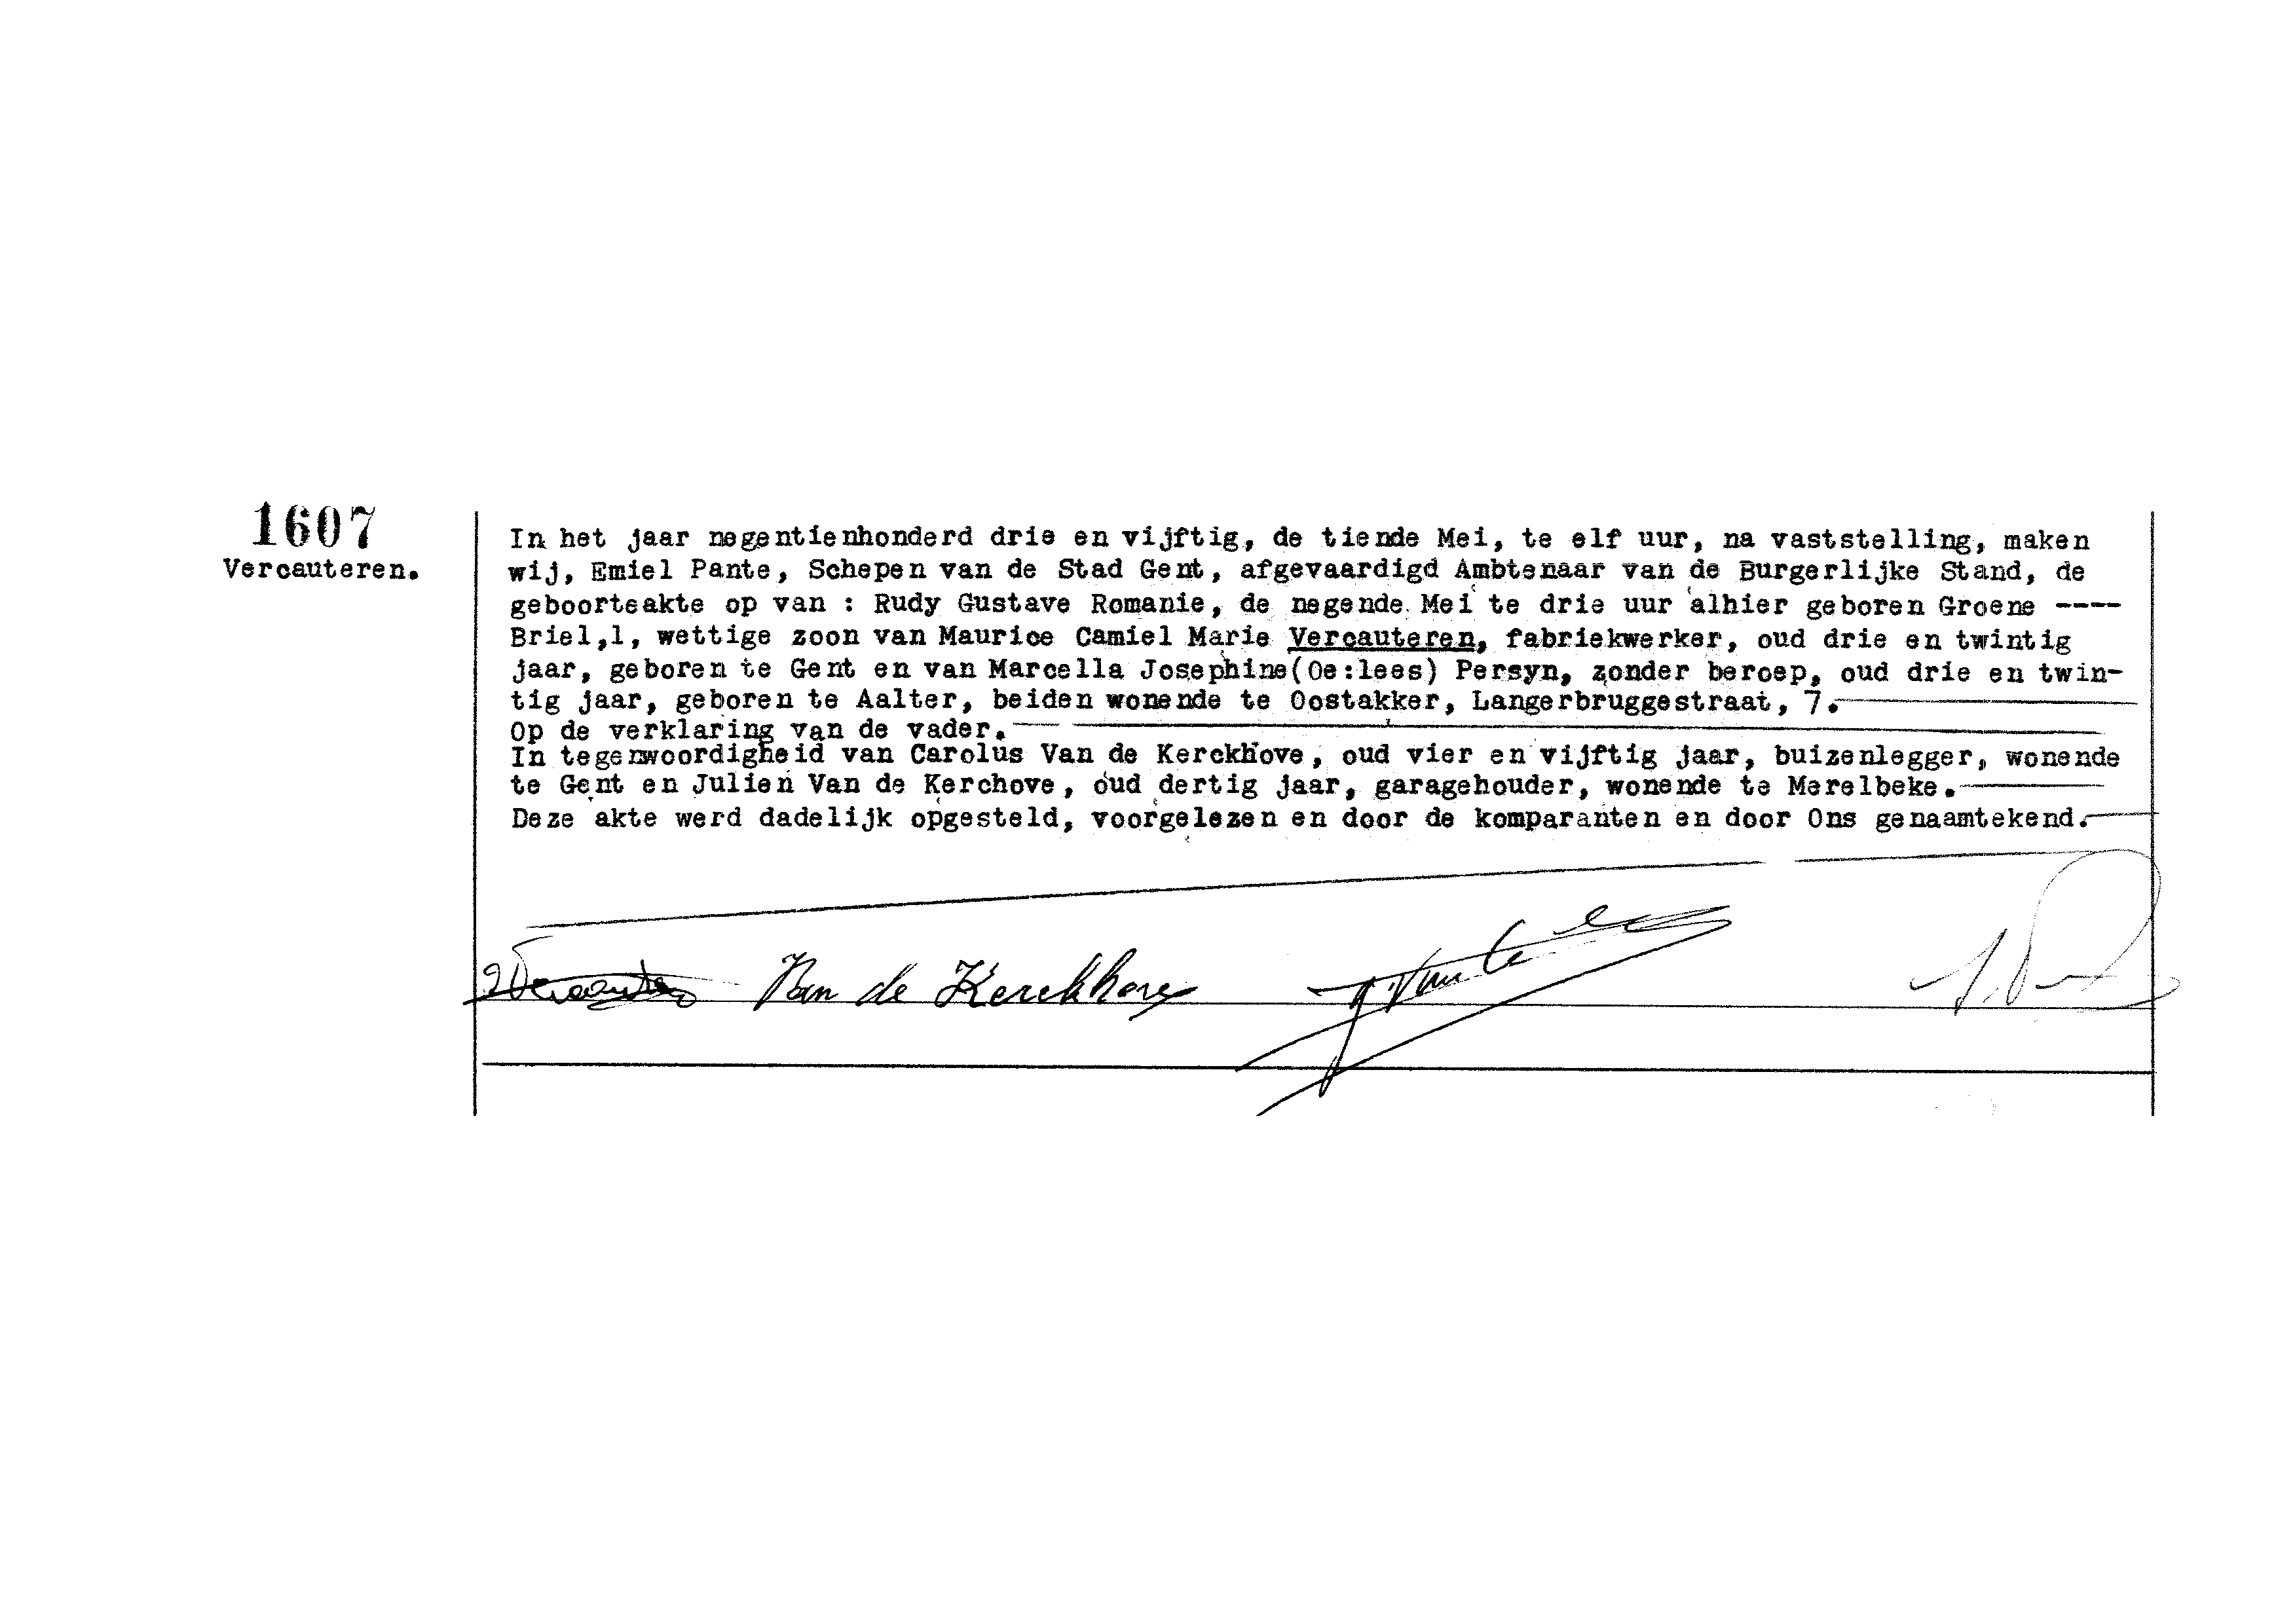 1607
Vercauteren.
In het jaar negentienhonderd drie en vijftig, de tiende Mei, te elf uur, na vaststelling, maken
wij, Emiel Pante, Schepen van de Stad Gent, afgevaardigd Ambtenaar van de Burgerlijke Stand, de
geboorteakte op van : Rudy Gustave Romanie, de negende Mei te drie uur alhier geboren Groene ----
Briel,1, wettige zoon van Maurice Camiel Marie Vercauteren, fabriekwerker, oud drie en twintig
jaar, geboren te Gent en van Marcella Josephine(Oe:lees) Persyn, zonder beroep, oud drie en twin-
tig jaar, geboren te Aalter, beiden wonende te Oostakker, Langerbruggestraat, 7.
Op de verklaring van de vader.
In tegenwoordigheid van Carolus Van de Kerckhove, oud vier en vijftig jaar, buizenlegger, wonende
te Gent en Julien Van de Kerchove, oud dertig jaar, garagehouder, wonende te Merelbeke.
Deze akte werd dadelijk opgesteld, voorgelezen en door de komparanten en door Ons genaamtekend.
Van de Kerckhove